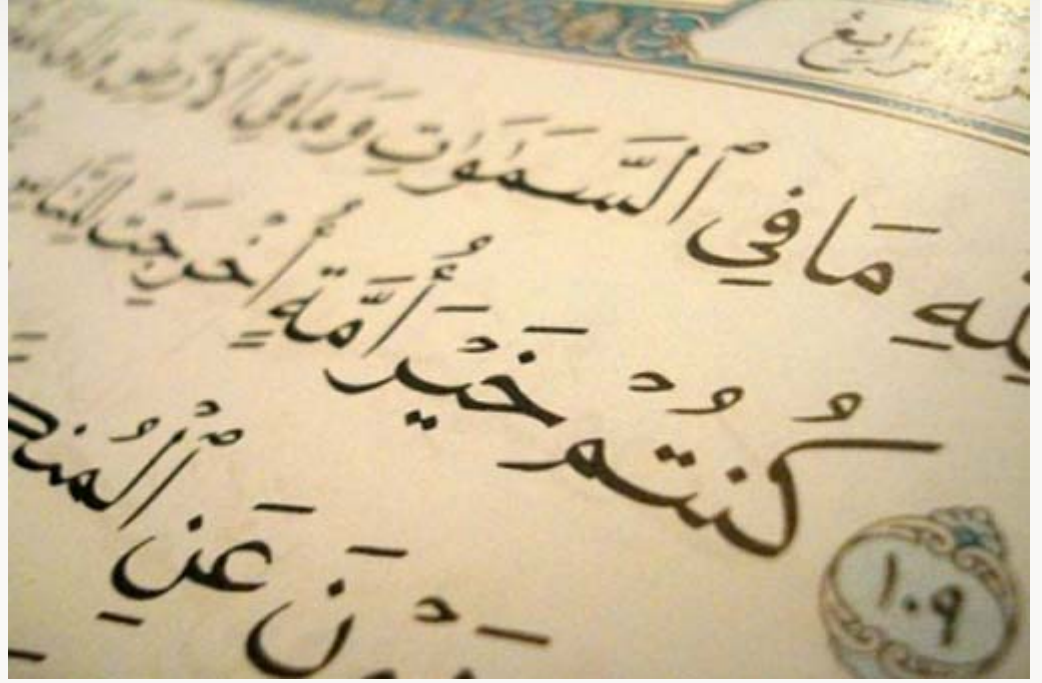 الرَّابِعُ
لِلَّهِ مَا فِي ٱلسَّمَٰوَٰتِ وَمَا فِي ٱلْأَرْضِ
١٠٩ كُنتُمْ خَيْرَ أُمَّةٍ أُخْرِجَتْ لِلنَّاسِ
وْنَ عَنِ ٱلْمُنكَ